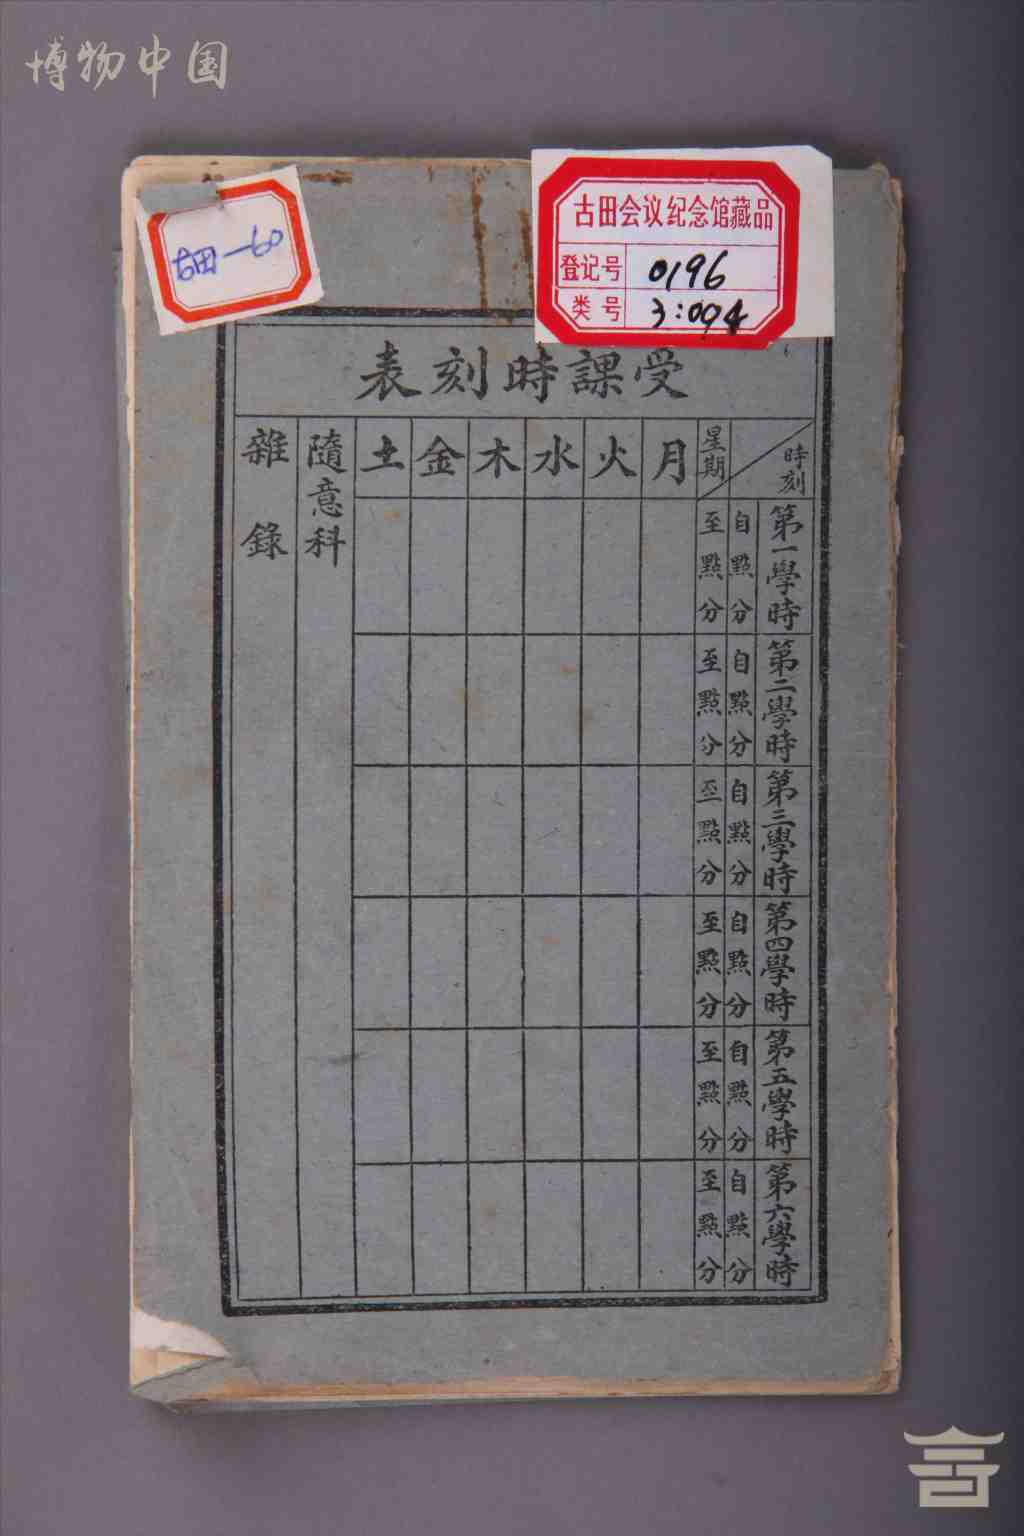 博物中国
古田会议纪念馆藏品
登记号 0196
类号 3:094
古田—60
受課時刻表
時刻
星期
月
火
水
木
金
土
隨意科
雜錄
第一學時
自點分
至點分
第二學時
自點分
至點分
第三學時
自點分
至點分
第四學時
自點分
至點分
第五學時
自點分
至點分
第六學時
自點分
至點分